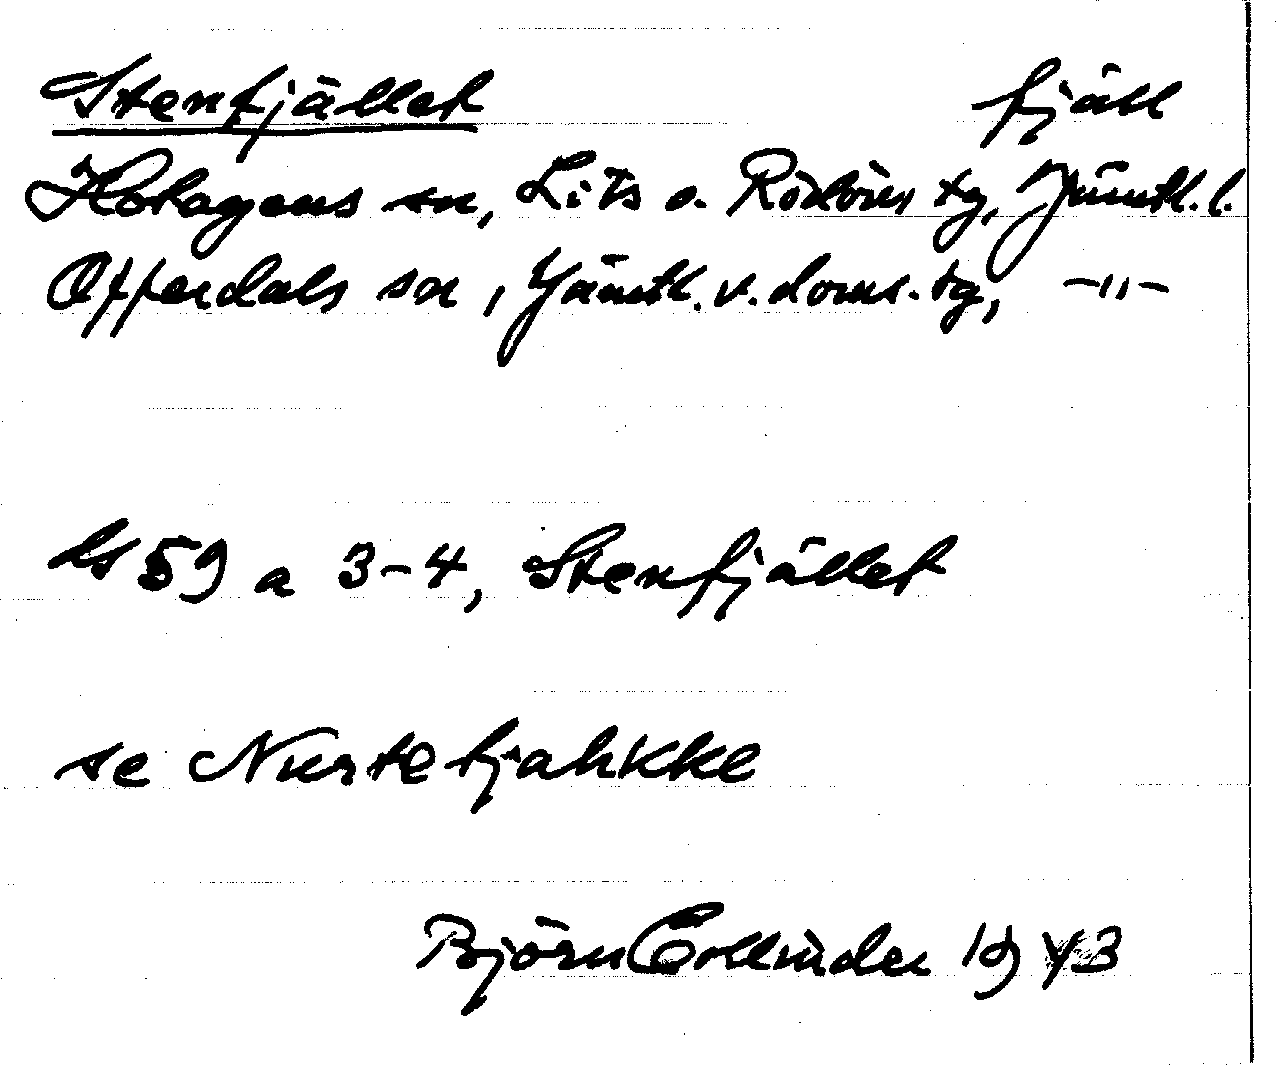 Stenfjället fjäll
Hotagens sn, Lits o. Rödöns tg, Jämtl. l.
Offerdals sn, Jämtl. v. doms. tg, -"-
ls 59 a 3-4, Stenfjället
se Nurtetjahkke
Björn Collinder 1943